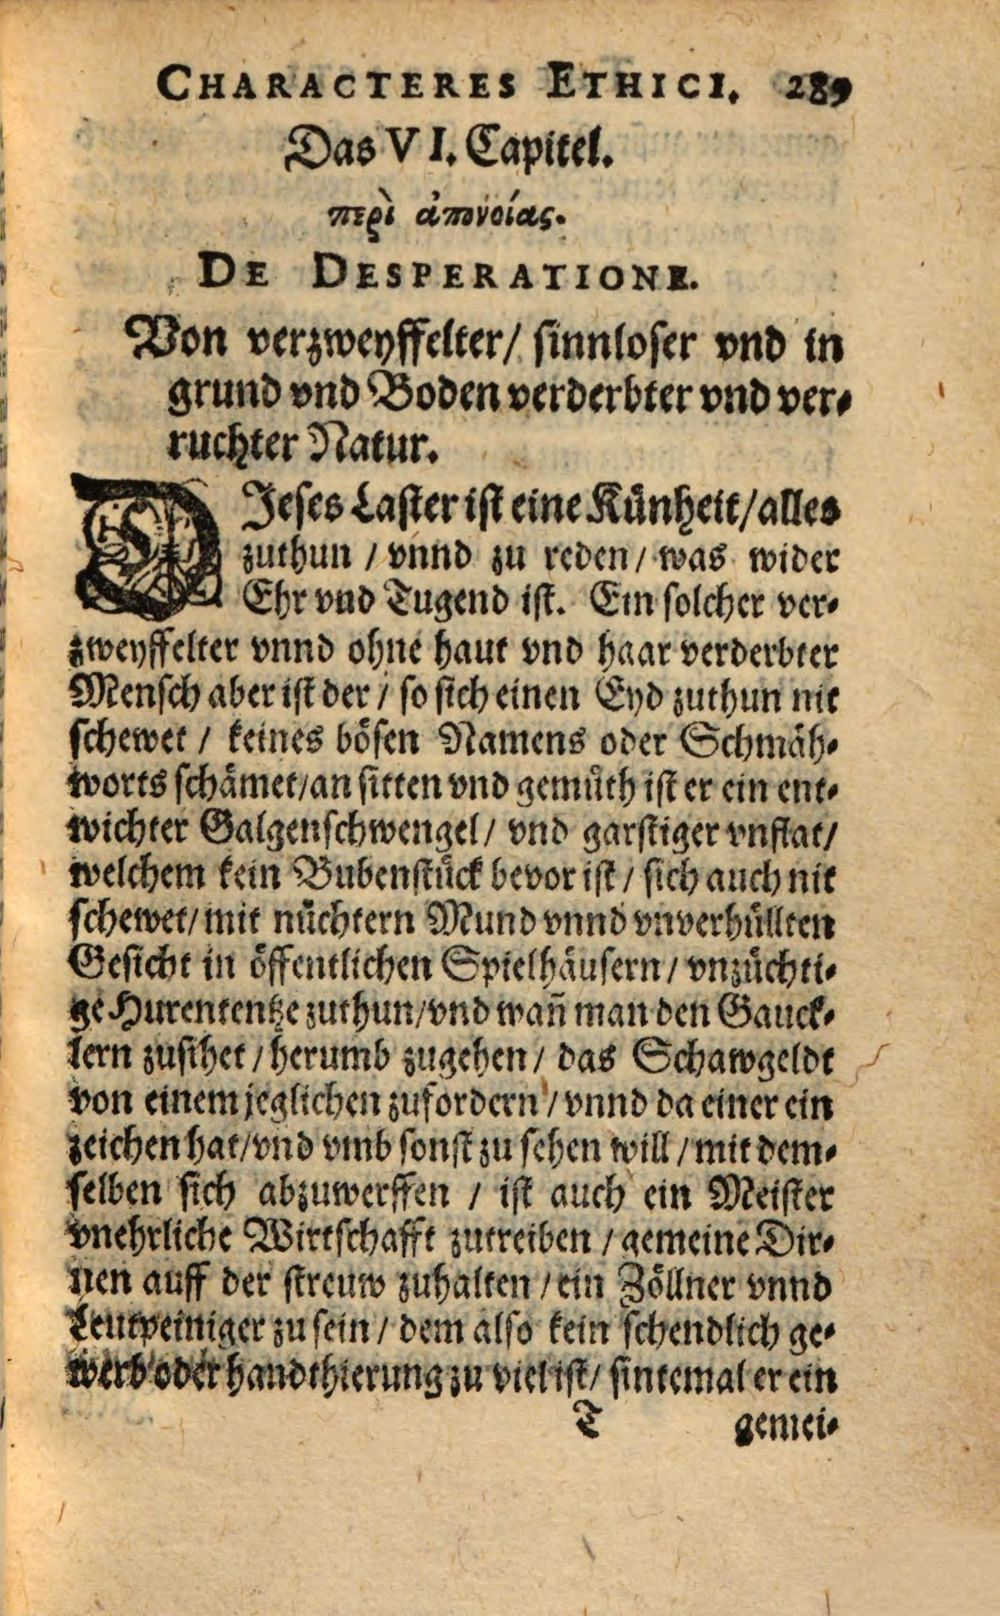 CHARACTERES ETHICI. 289
Das VI. Capitel.
περὶ ἀπονοίας.
DE DESPERATIONE.
Von verzweyffelter/ sinnloser vnd in
grund vnd Boden verderbter vnd ver-
ruchter Natur.
DJeses Laster ist eine Künheit/alles
zuthun / vnnd zu reden/ was wider
Ehr vnd Tugend ist. Ein solcher ver-
zweyffelter vnnd ohne haut vnd haar verderbter
Mensch aber ist der / so sich einen Eyd zuthun nit
schewet / keines bösen Namens oder Schmäh-
worts schämet/an sitten vnd gemüth ist er ein ent-
wichter Galgenschwengel/ vnd garstiger vnflat/
welchem kein Bubenstück bevor ist / sich auch nit
schewet/ mit nüchtern Mund vnnd vnverhüllten
Gesicht in öffentlichen Spielhäusern/ vnzüchti-
ge Hurententze zuthun/vnd wañ man den Gauck-
lern zusihet / herumb zugehen / das Schawgeldt
von einem jeglichen zufordern / vnnd da einer ein
zeichen hat/vnd vmb sonst zu sehen will / mit dem-
selben sich abzuwerffen / ist auch ein Meister
vnehrliche Wirtschafft zutreiben / gemeine Dir-
nen auff der streuw zuhalten / ein Zöllner vnnd
Leutpeiniger zu sein / dem also kein schendlich ge-
werb oder handthierung zu viel ist/ sintemal er ein
T gemei-